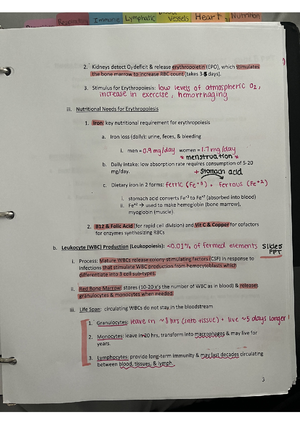 Respiratory Immune Lymphatic Vessels Heart Nutrition
2. Kidneys detect O₂ deficit & release erythropoietin (EPO), which stimulates
the bone marrow to increase RBC count (takes 3-5 days).
3. Stimulus for Erythropoiesis: low levels of atmospheric O₂,
increase in exercise, hemorrhaging
ii. Nutritional Needs for Erythropoiesis
1. Iron: key nutritional requirement for erythropoiesis
a. Iron loss (daily): urine, feces, & bleeding
i. men = 0.9 mg/day women = 1.7 mg/day
* menstruation *
b. Daily Intake: low absorption rate requires consumption of 5-20
mg/day.
stomach acid
c. Dietary iron in 2 forms: ferric (Fe⁺³) + ferrous (Fe⁺²)
i. stomach acid converts Fe⁺³ to Fe⁺² (absorbed into blood)
ii. Fe⁺² → used to make hemoglobin (bone marrow),
myoglobin (muscle)
2. B12 & Folic Acid (for rapid cell division) and Vit C & Copper for cofactors
for enzymes synthesizing RBCs
b. Leukocyte (WBC) Production (Leukopoiesis): <0.01% of formed elements
slides
PPT
i. Process: Mature WBCs release colony-stimulating factors (CSF) in response to
infections that stimulate WBC production from hemocytoblasts which
differentiate into 3 cell sub-types
ii. Red Bone Marrow stores (10-20 x's the number of WBC as in blood) & releases
granulocytes & monocytes when needed.
iii. Life Span: circulating WBCs do not stay in the bloodstream
1. Granulocytes: leave in ~8 hrs (into tissue) + live ~5 days longer!
2. Monocytes: leave in 20 hrs, transform into macrophages & may live for
years.
3. Lymphocytes: provide long-term immunity & may last decades circulating
between blood, tissues, & lymph.
3